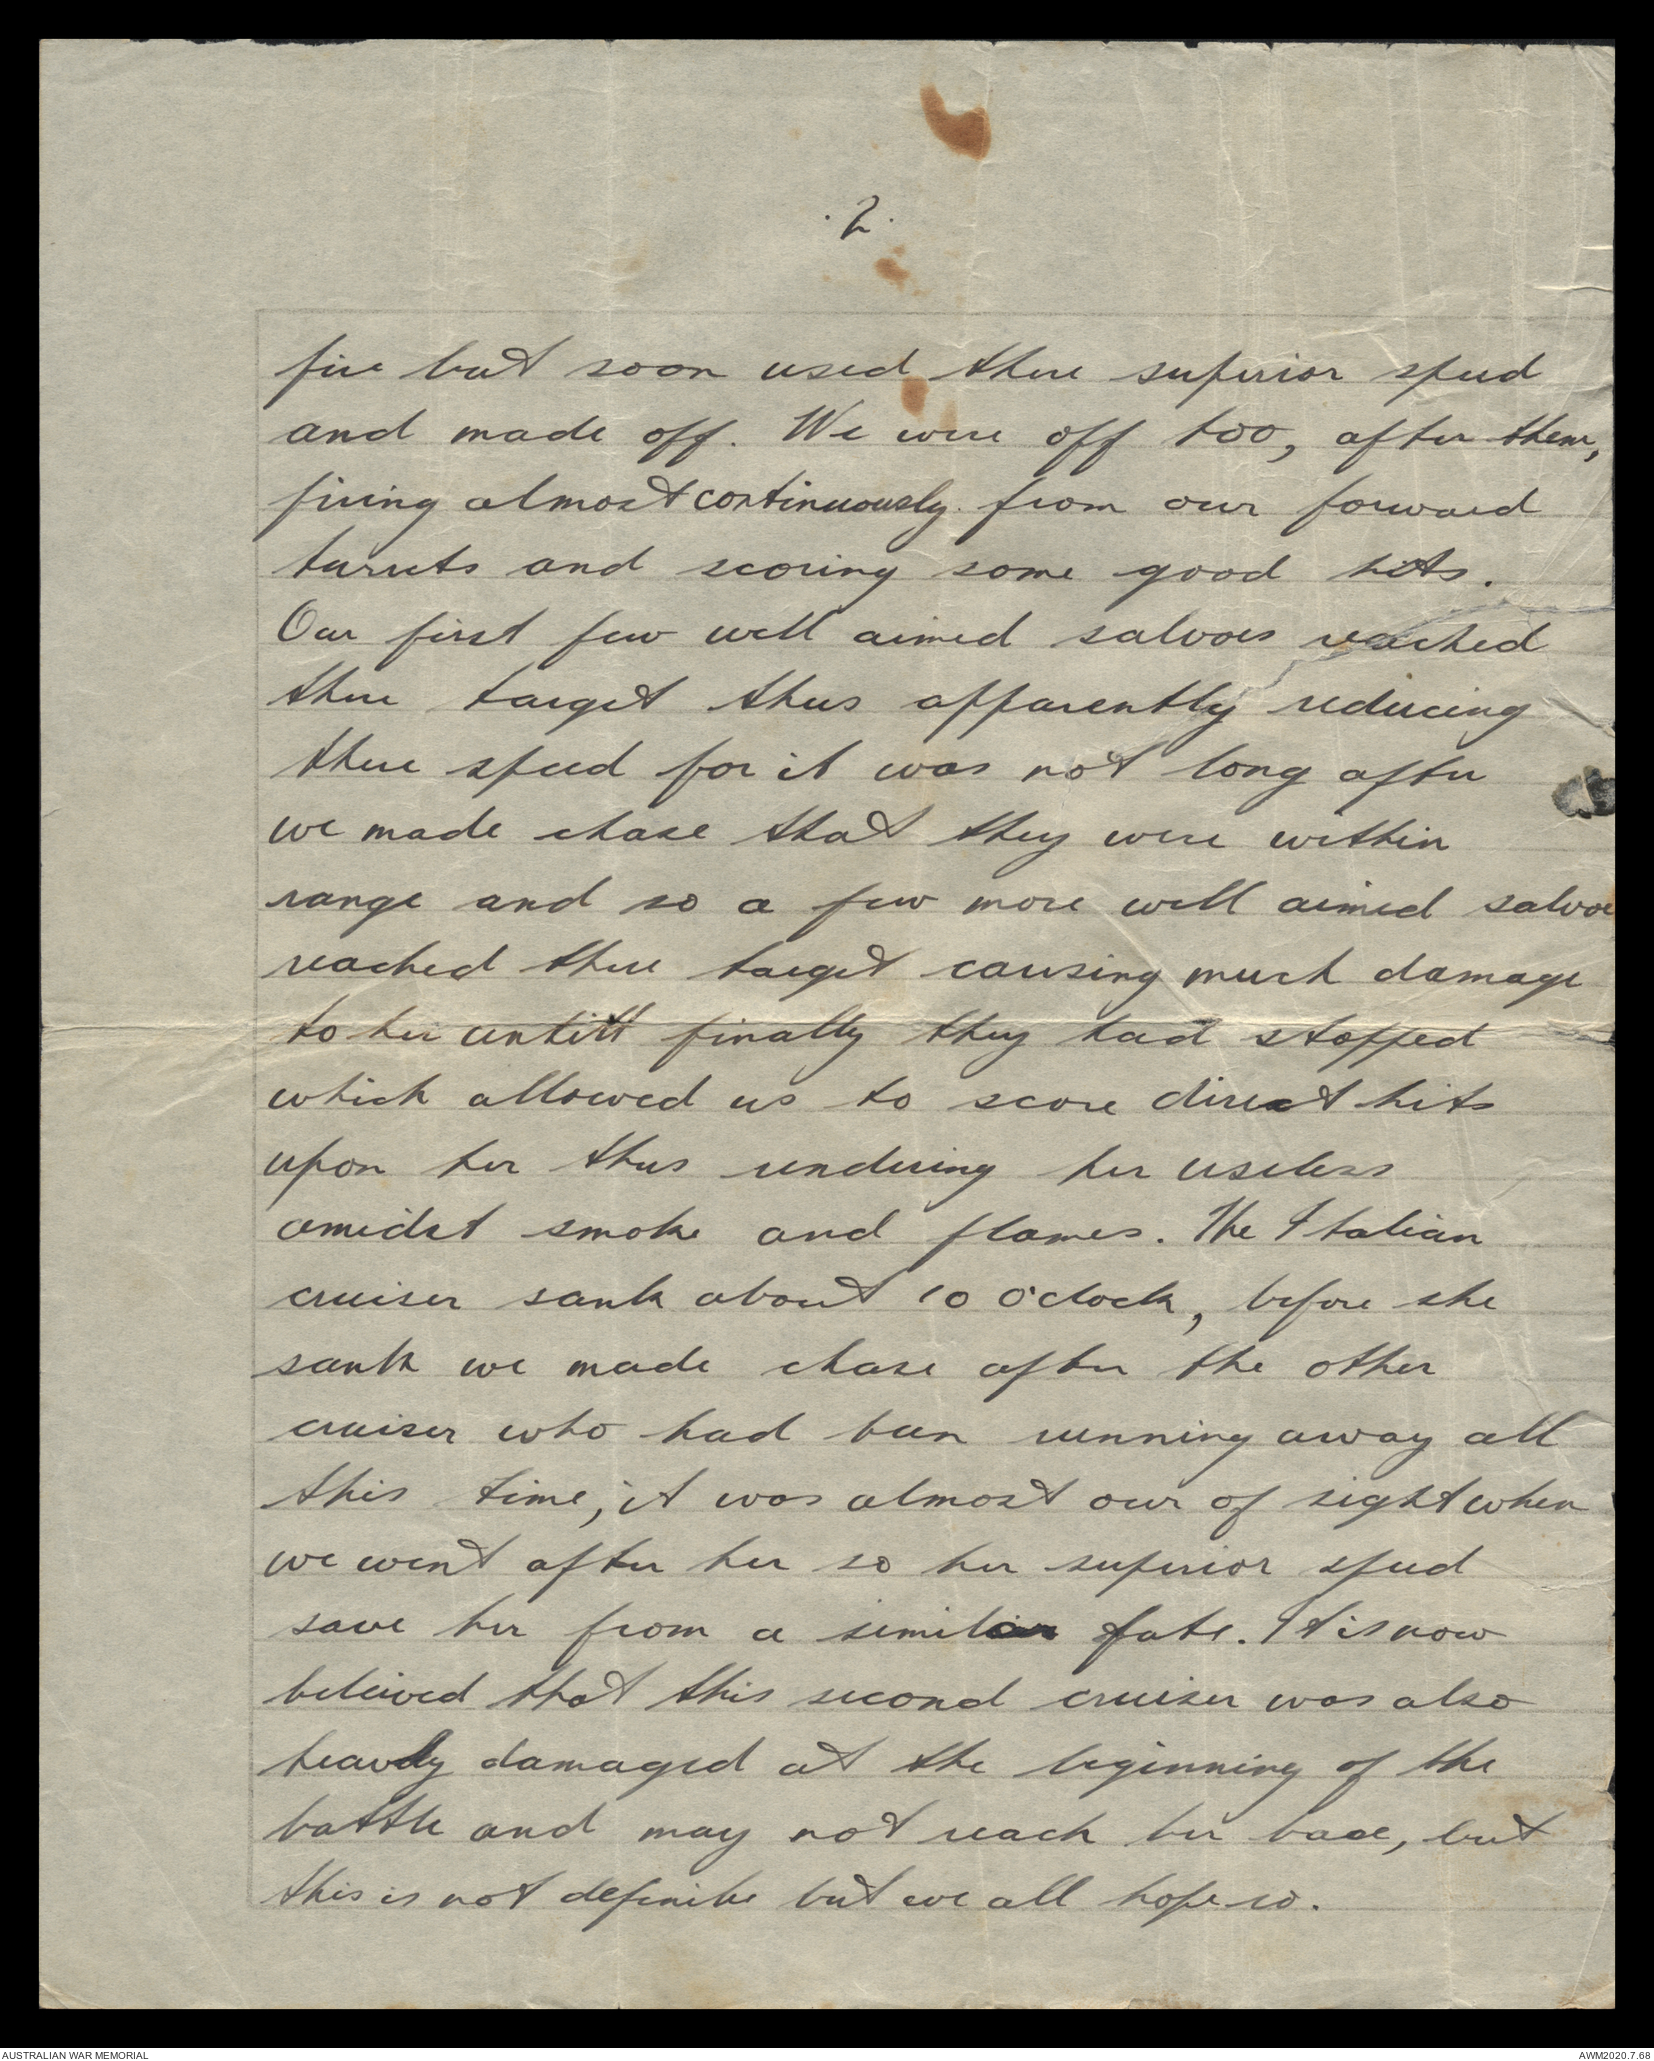 .2.
fire but soon used there superior speed
and made off. We were off too, after them,
firing almost continuously. from our forward
turrets and scoring some good hits.
Our first few well aimed salvoes reached
there target thus apparently reducing
there speed for it was not long after
we made chase that they were within
range and so a few more well aimed salvoe
reached there target causing much damage
to her untill finally they had stopped
which allowed us to score direct hits
upon her thus rendering her useless
amidst smoke and flames. The Italian
cruiser sank about 10 O'clock, before she
sank we made chase after the other
cruiser who had been running away all
this time, it was almost our of sight when
we went after her so her superior speed
save her from a similar fate. It is now
beleived that this second cruiser was also
heavdly damaged at the beginning of the
battle and may not reach her base, but
this is not definite but we all hope so.
AUSTRALIAN WAR MEMORIAL
AWM2020.7.68